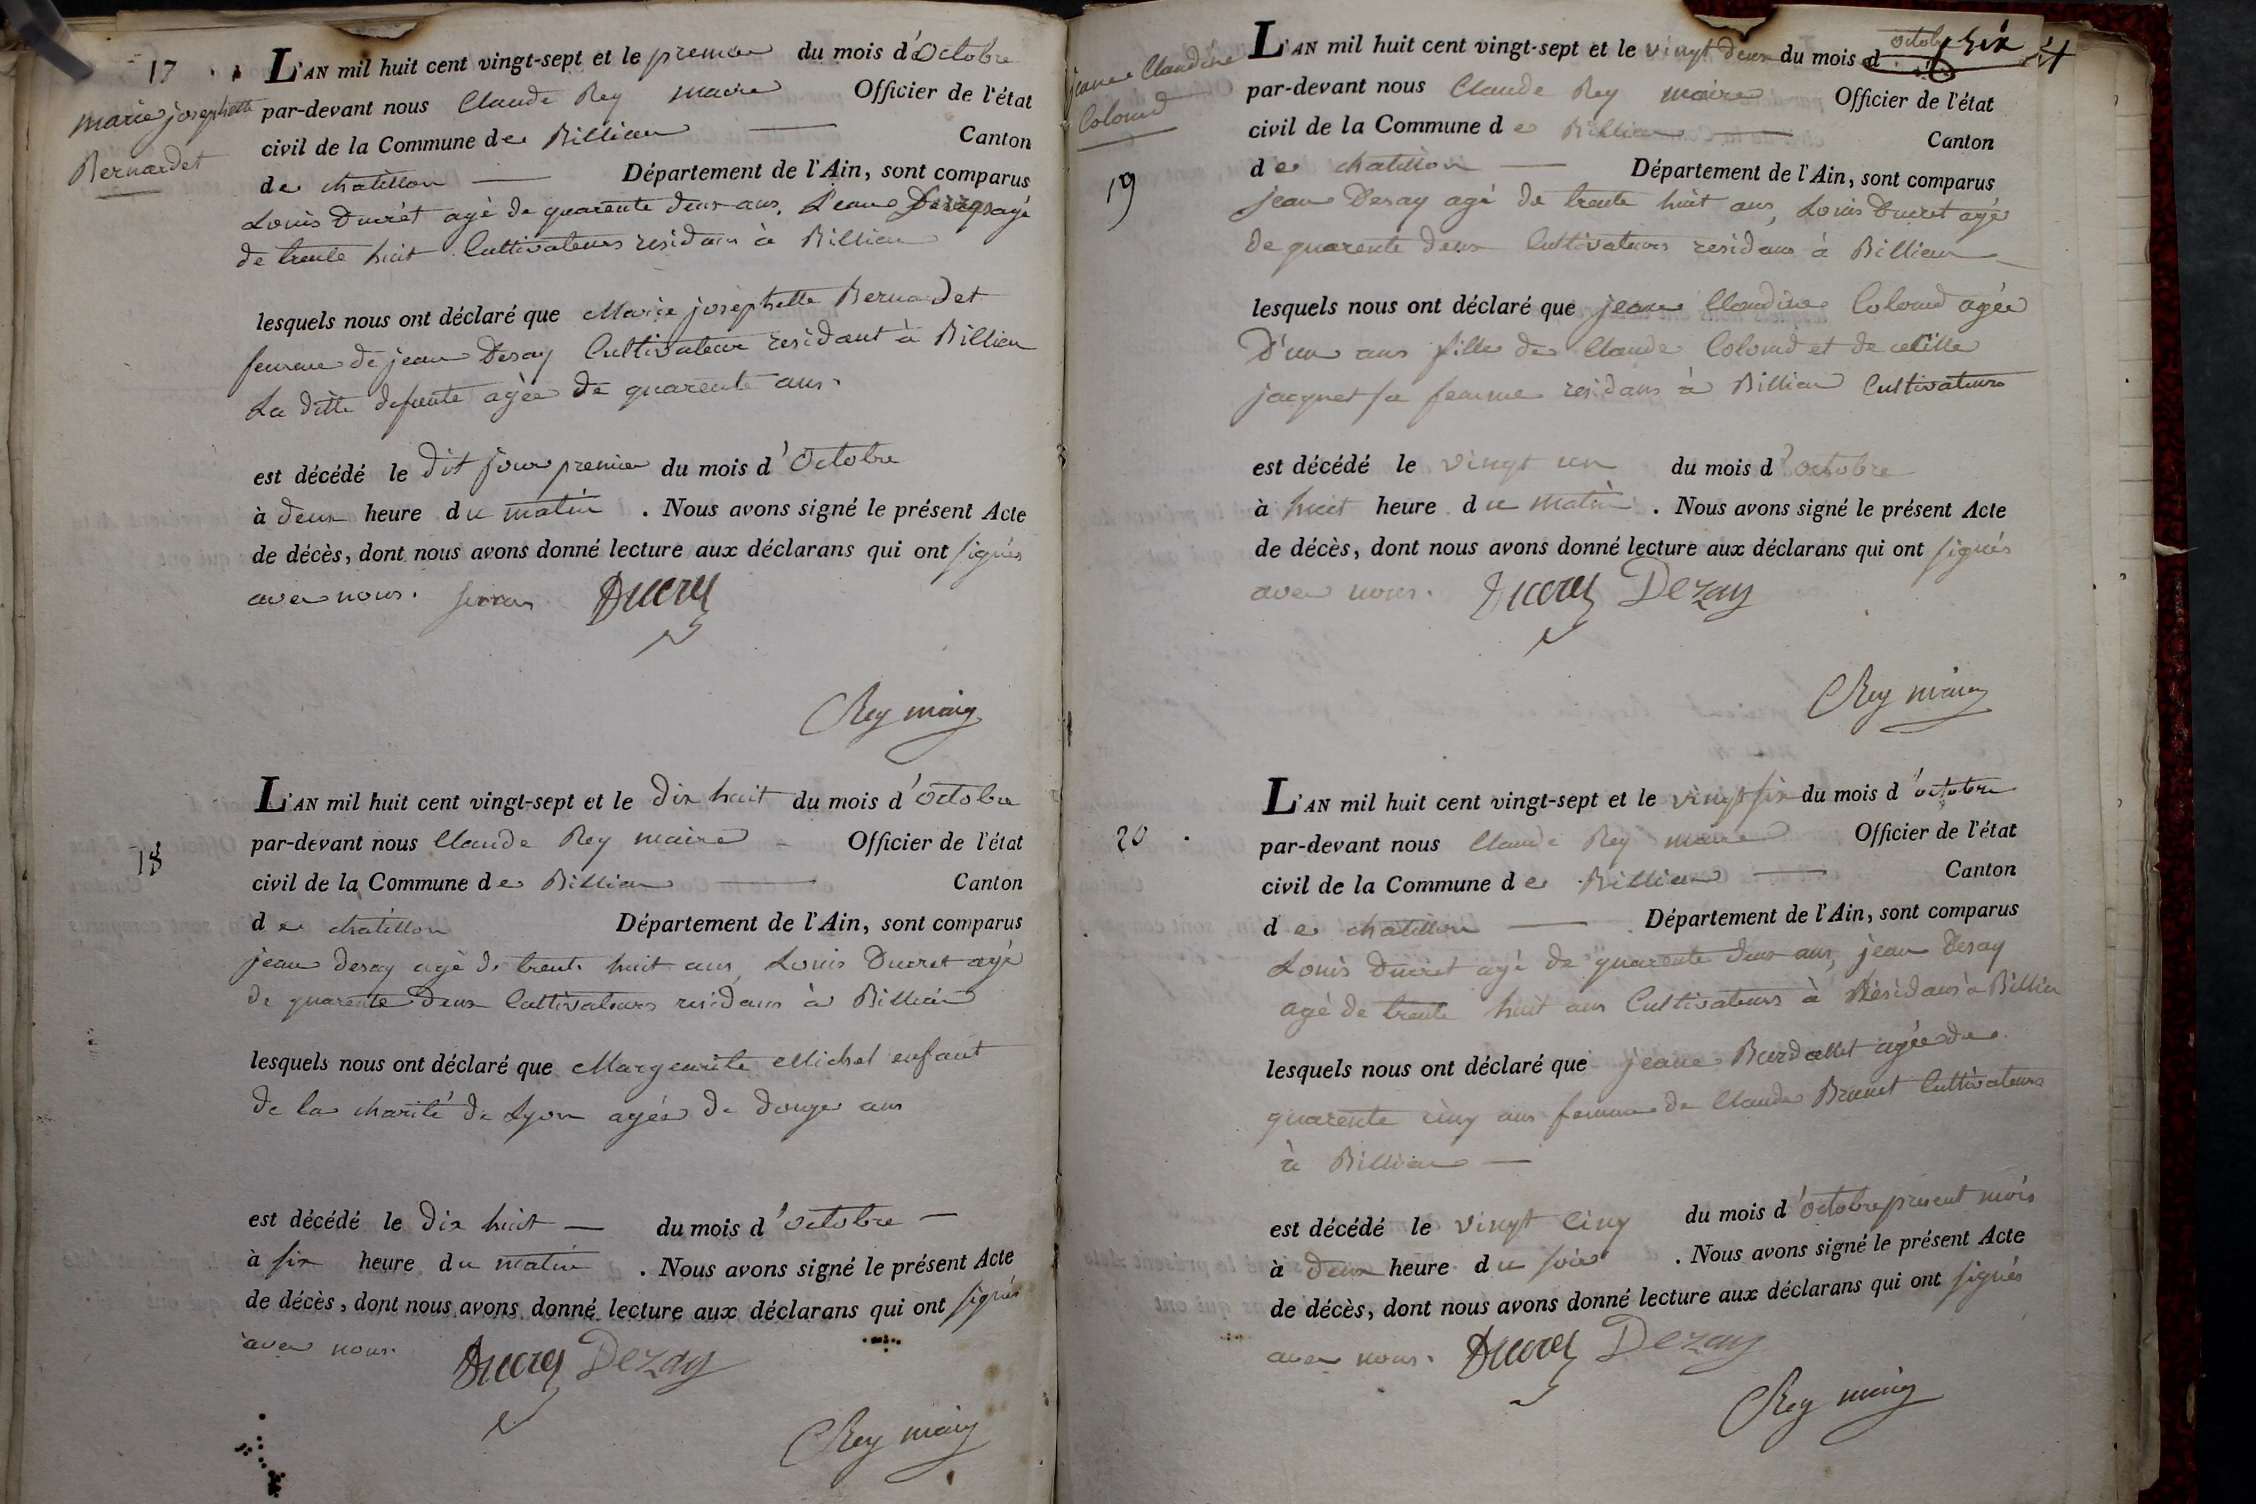 17
marie josephette
Bernardet
L'AN mil huit cent vingt-sept et le premier du mois d'Octobre
par-devant nous Claude Rey maire Officier de l'état
civil de la Commune de Billieu Canton
de chatillon Département de l'Ain, sont comparus
Louis Ducret agé de quarente deux ans, Jean Desay agé
de trente huit Cultivateurs residans à Billieu
lesquels nous ont déclaré que Marie josephette Bernardet
femme de jean Desay Cultivateur residant à Billieu
La ditte defunte agée de quarente ans.
est décédé le dit jour premier du mois d'Octobre
à deux heure du matin . Nous avons signé le présent Acte
de décès, dont nous avons donné lecture aux déclarans qui ont signés
avec nous. Ducret
Rey maire
18
L'AN mil huit cent vingt-sept et le dix huit du mois d'octobre
par-devant nous Claude Rey maire Officier de l'état
civil de la Commune de Billieu Canton
de chatillon Département de l'Ain, sont comparus
jean desay agé de trente huit ans, Louis Ducret agé
de quarente deux Cultivateurs residans à Billieu
lesquels nous ont déclaré que Marguerite Michel enfant
de la charité de Lyon agée de douze ans
est décédé le dix huit du mois d'octobre
à six heure du matin . Nous avons signé le présent Acte
de décès, dont nous avons donné lecture aux déclarans qui ont signés
avec nous.
Ducret Dezay
Rey maire
six
jeane Claudine
Colomd
19
L'AN mil huit cent vingt-sept et le vingt deux du mois d octobre
par-devant nous Claude Rey maire Officier de l'état
civil de la Commune de Billieu Canton
de chatillon Département de l'Ain, sont comparus
jean Desay agé de trente huit ans, Louis Ducret agé
de quarente deux Cultivateurs residans à Billieu
lesquels nous ont déclaré que jeane Claudine Colomd agée
D'un ans fille de Claude Colomd et de cecille
jacquet sa femme residans à Billieu Cultivateurs
est décédé le vingt un du mois d'octobre
à huit heure du matin . Nous avons signé le présent Acte
de décès, dont nous avons donné lecture aux déclarans qui ont signés
avec nous. Ducret Dezay
Rey maire
20
L'AN mil huit cent vingt-sept et le vingt six du mois d'octobre
par-devant nous Claude Rey maire Officier de l'état
civil de la Commune de Billieu Canton
de chatillon Département de l'Ain, sont comparus
Louis Ducret agé de quarente deux ans, jean Desay
agé de trente huit ans Cultivateurs à Résidans à Billieu
lesquels nous ont déclaré que jeane Burdallet agée de
quarente cinq ans femme de Claude Brunet Cultivateurs
à Billieu
est décédé le vingt cinq du mois d'octobre present mois
à deux heure du soir . Nous avons signé le présent Acte
de décès, dont nous avons donné lecture aux déclarans qui ont signés
avec nous. Ducret Dezay
Rey maire